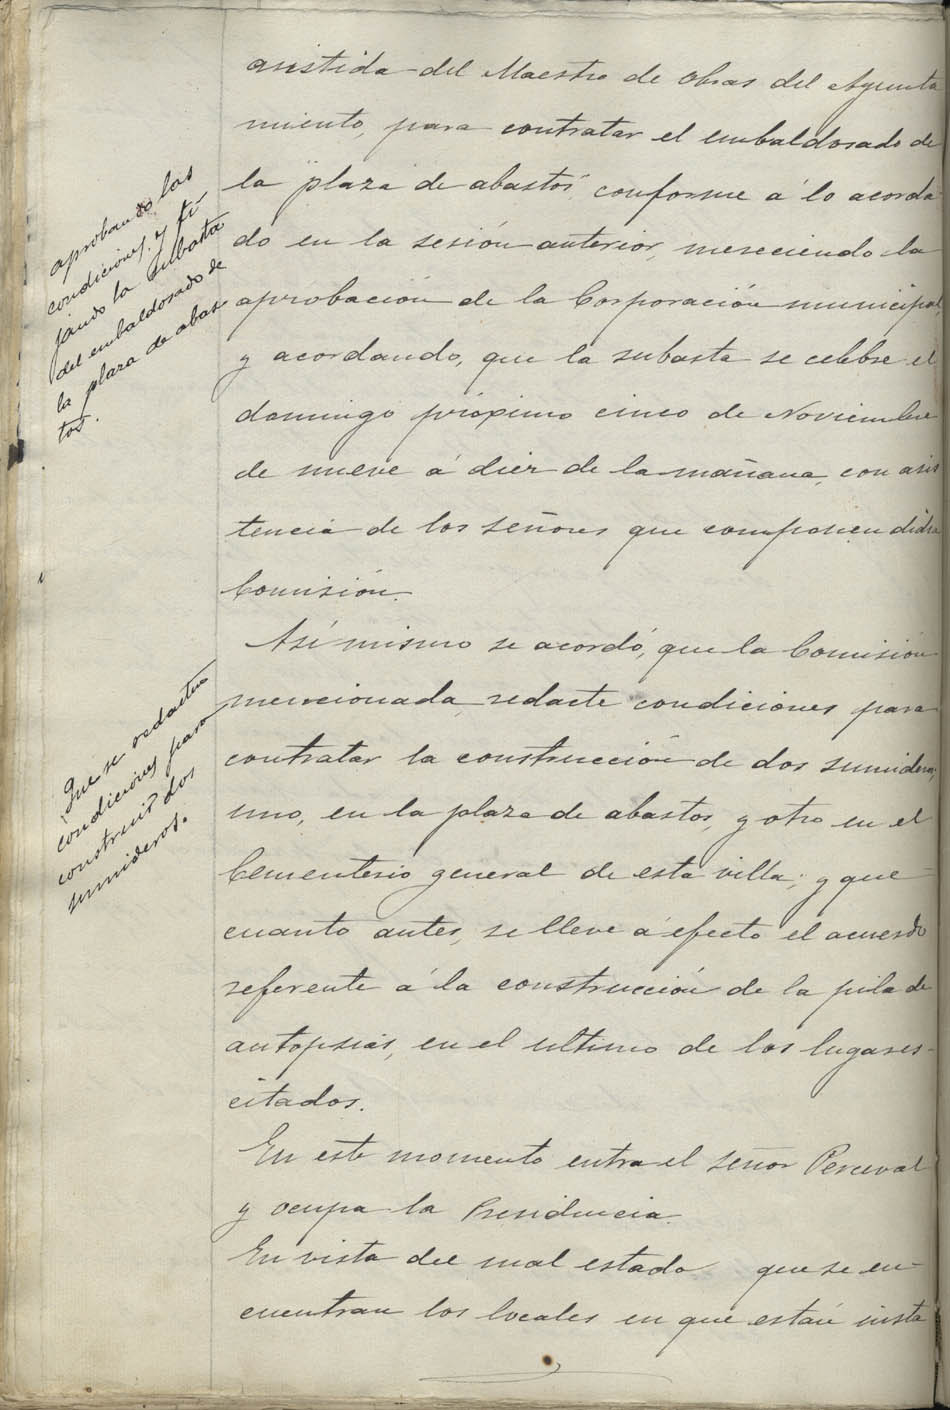 asistida del Maestro de obras del Ayunta
miento, para contratar el embaldosado de
la plaza de abastos, conforme á lo acorda
do en la sesión anterior, mereciendo la
aprobación de la Corporación municipal,
y acordando, que la subasta se celebre el
domingo próximo cinco de Noviembre
de nueve á diez de la mañana, con asis
tencia de los señores que componen dicha
Comisión.
aprobando las
condiciones y fi
jando la subasta
del embaldosado de
la plaza de abas
tos.
Así mismo se acordó, que la Comisión
mencionada, redacte condiciones para
contratar la construcción de dos sumideros;
uno, en la plaza de abastos, y otro en el
Cementerio general de esta villa; y que
cuanto antes, se lleve á efecto el acuerdo
referente á la construcción de la pila de
autopsias, en el ultimo de los lugares
citados.
Que se redacten
condiciones para
construir dos
sumideros.
En este momento entra el señor Perceval
y ocupa la Presidencia.
En vista del mal estado que se en-
cuentran los locales en que están insta